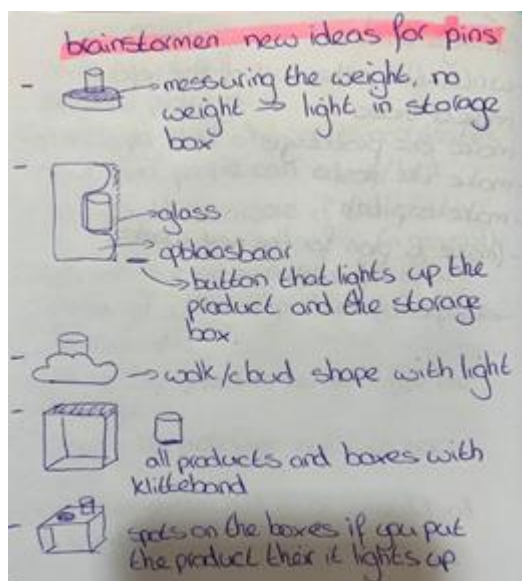 brainstormen new ideas for pins
- messuring the weight, no
weight → light in storage
box
- glass
opblaasbaar
button that lights up the
product and the storage
box
- wolk/cloud shape with light
- all products and boxes with
klitteband
- spots on the boxes if you put
the product their it lights up